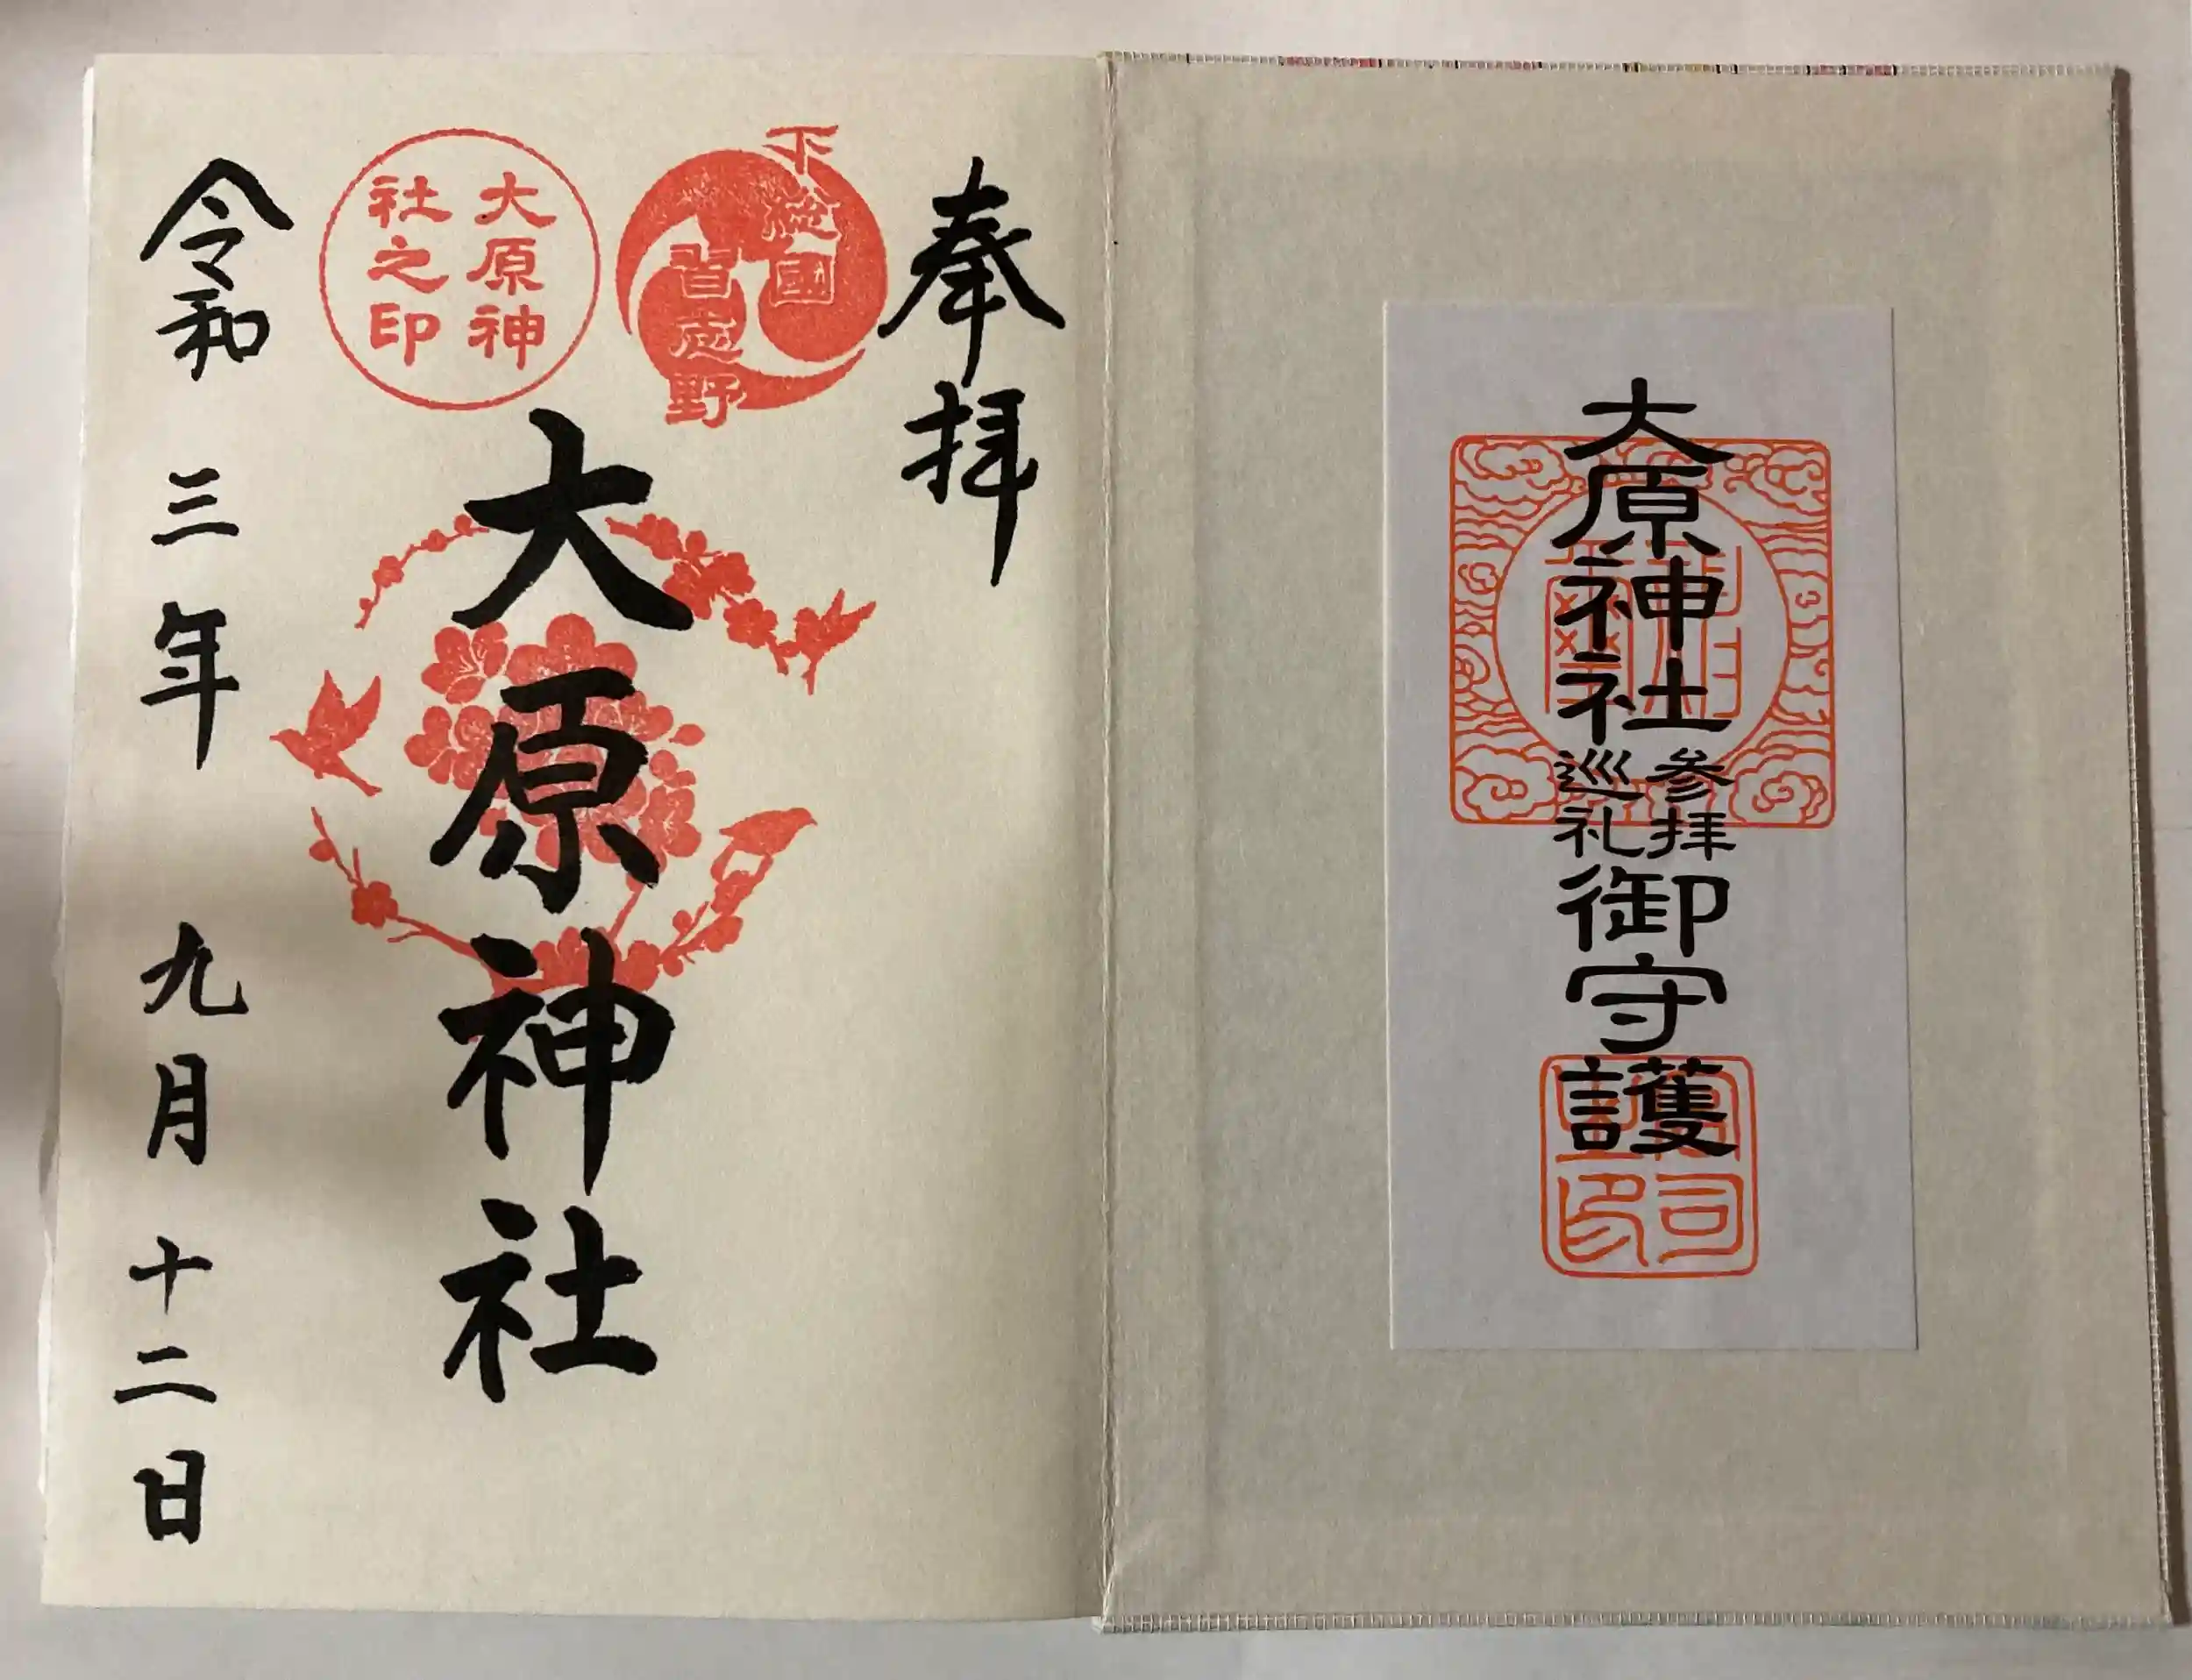 大原神社
参拝
巡礼
御守護
奉拝
下総國
習志野
大原神
社之印
大原神社
令和三年九月十二日